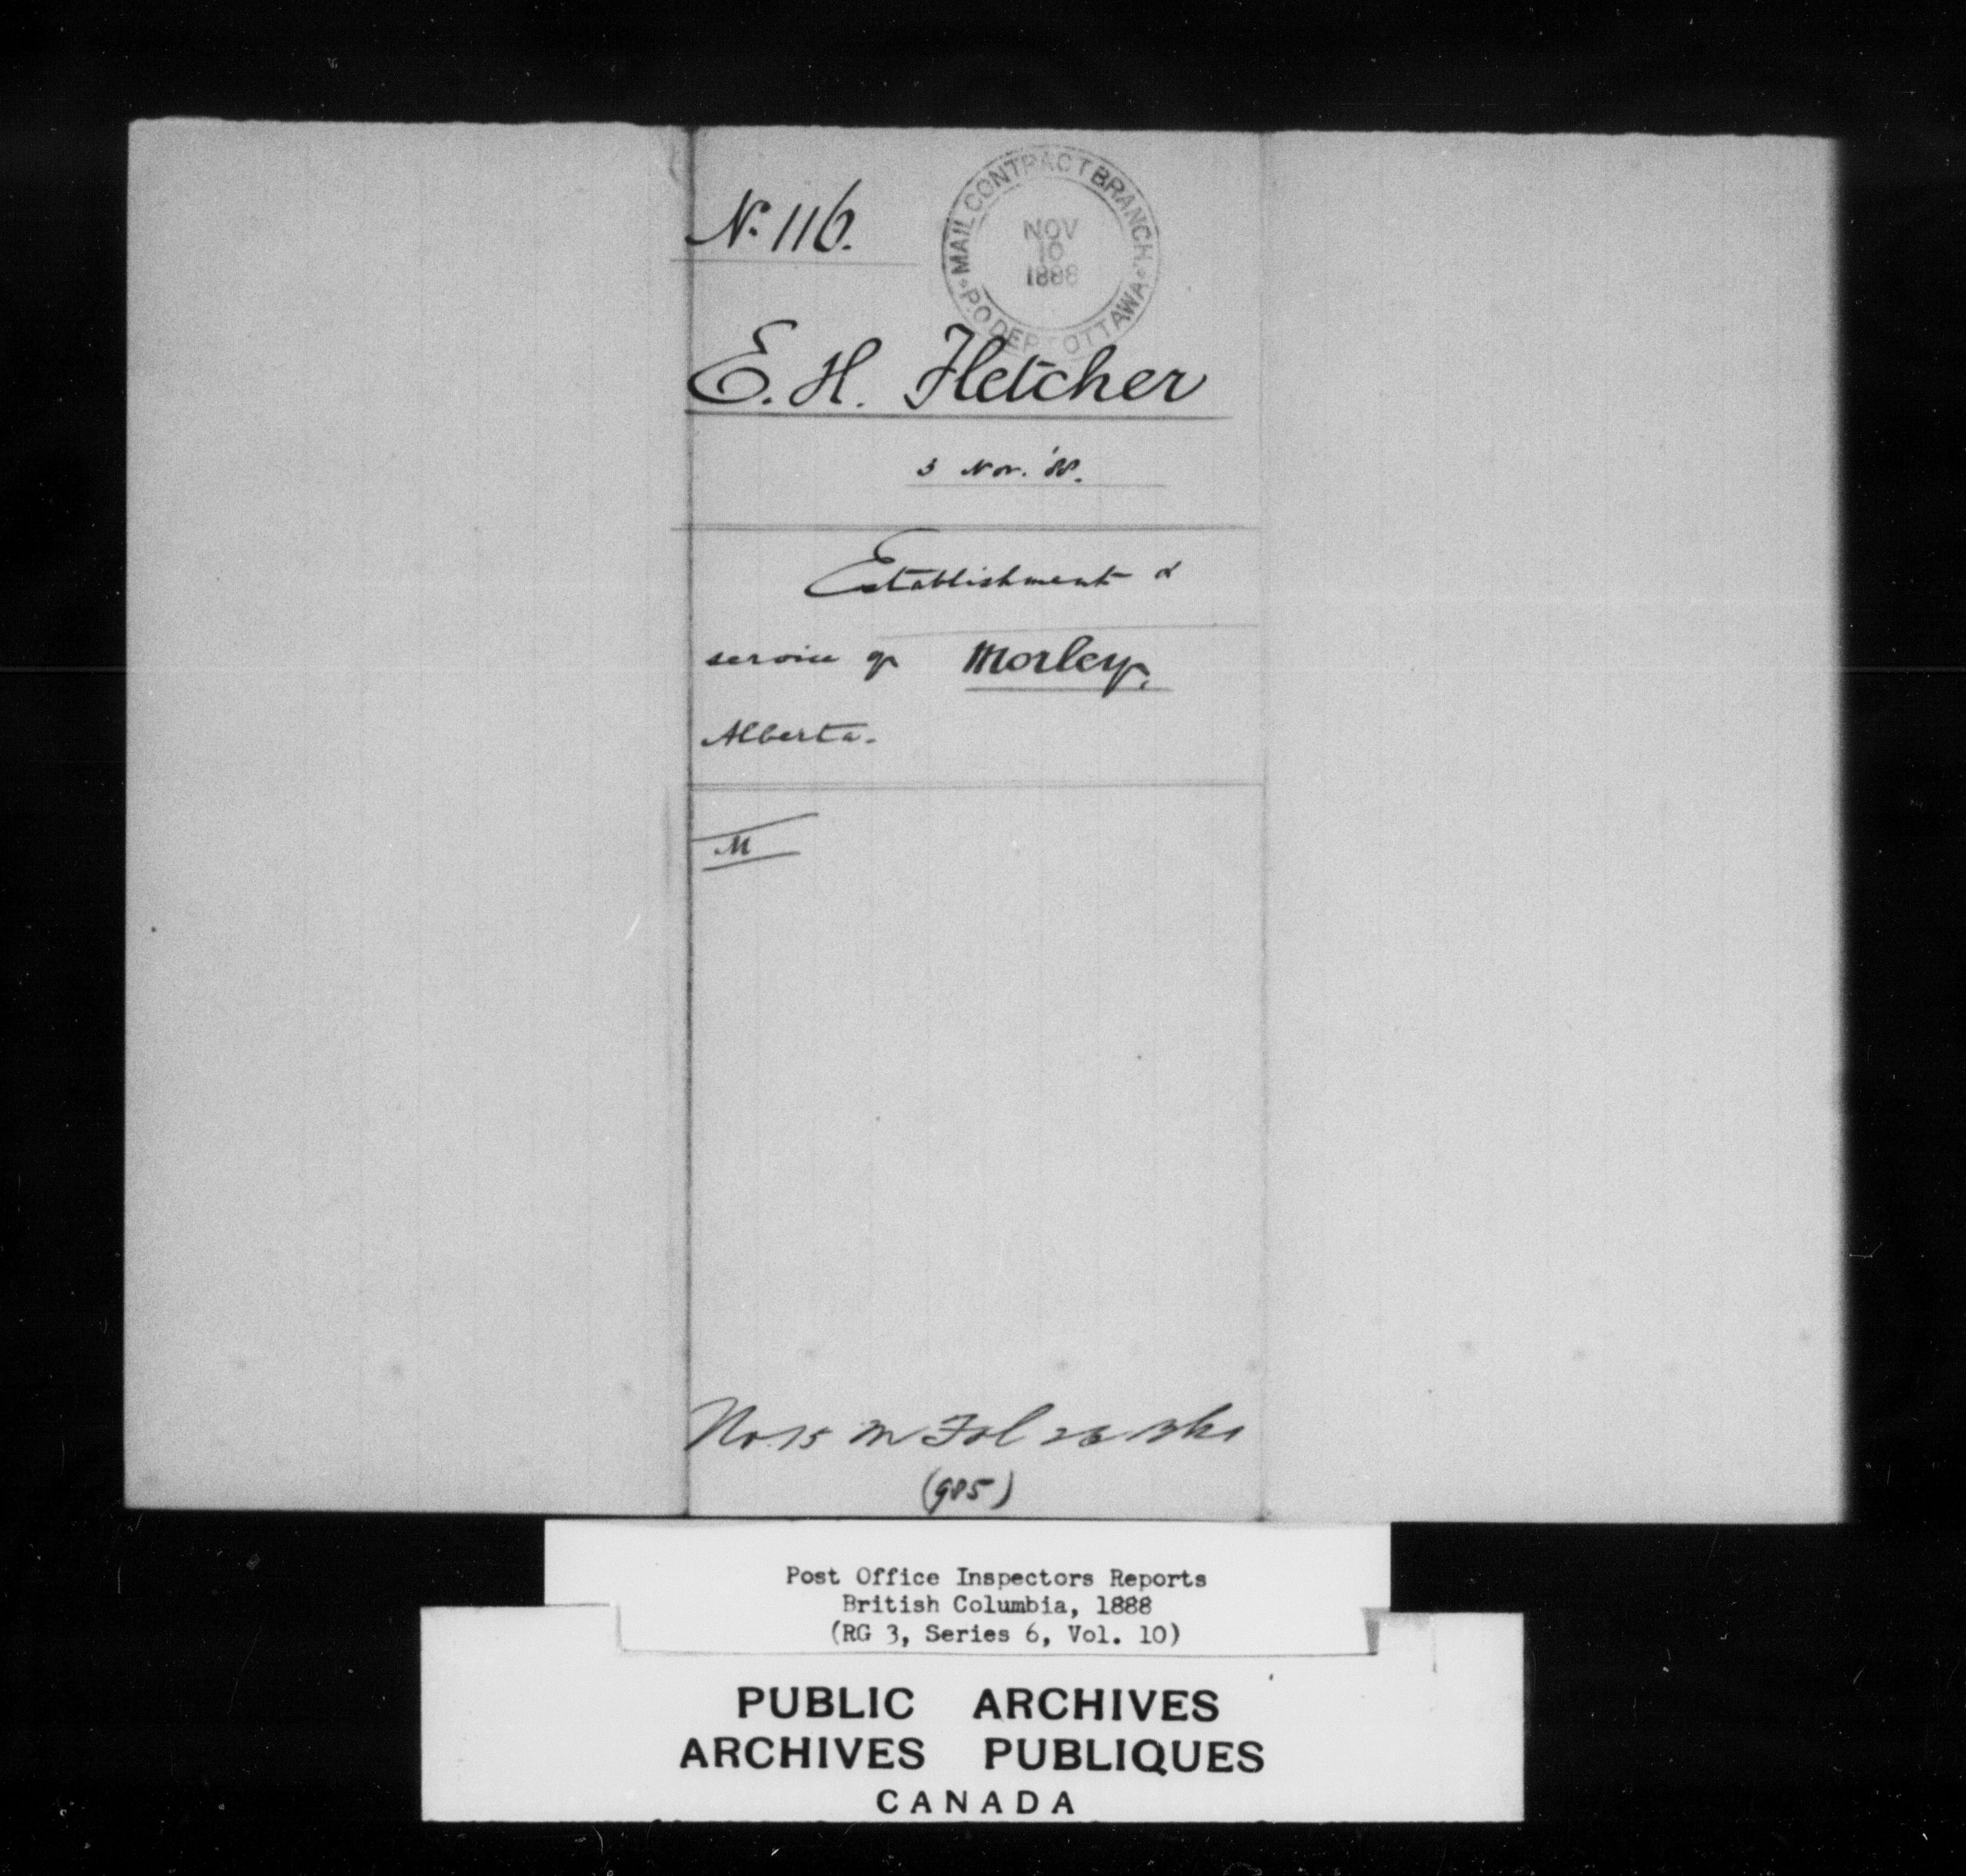 No. 116.
MAIL CONTRACT BRANCH.
NOV
10
1888
P.O DEPT OTTAWA
E. H. Fletcher
3 Nov. '88.
Establishment &
service of Morley,
Alberta.
M
No 15 M Fol 26
(985)
Post Office Inspectors Reports
British Columbia, 1888
(RG 3, Series 6, Vol. 10)
PUBLIC ARCHIVES
ARCHIVES PUBLIQUES
CANADA